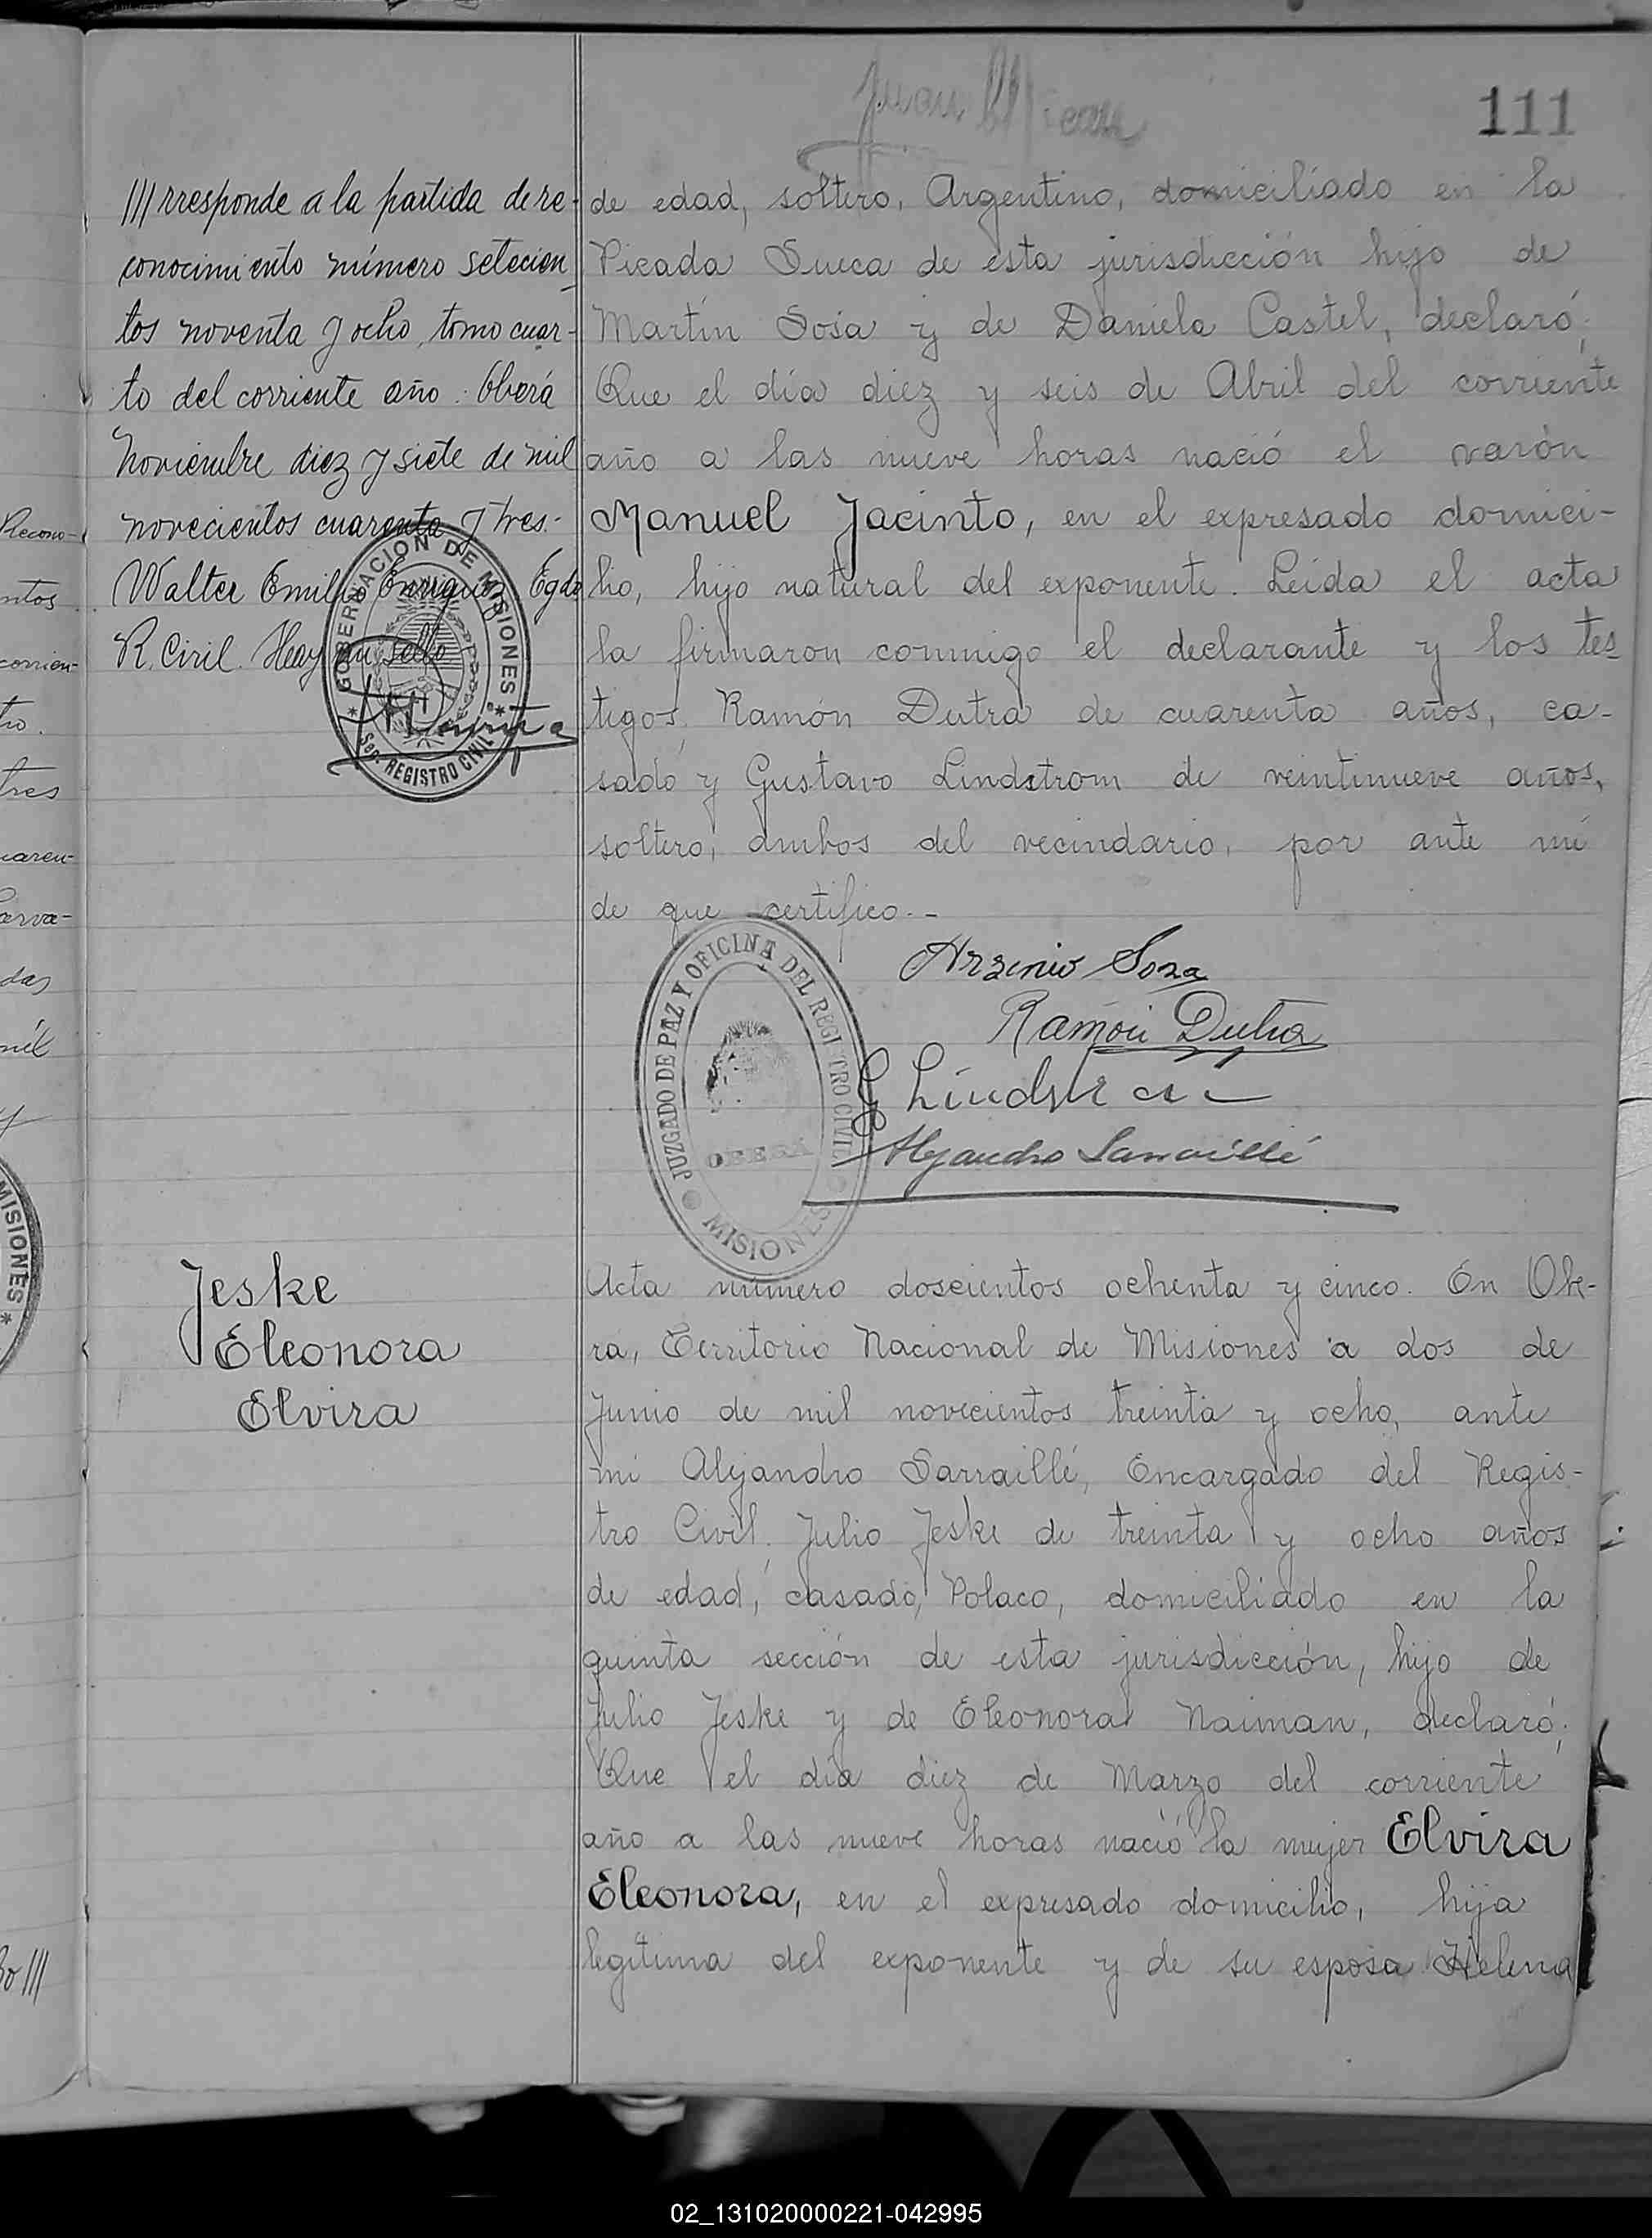 111
///rresponde a la partida de re-
conocimiento número setecien
tos noventa y ocho, tomo cuar-
to del corriente año. Oberá
Noviembre diez y siete de mil
novecientos cuarenta y tres.-
Walter Emilio Enriquez Egdo
R. Civil. Hay un sello
GOBERNACION DE MISIONES
Sec. REGISTRO CIVIL
de edad, soltero, Argentino, domiciliado en la
Picada Sueca de esta jurisdicción hijo de
Martín Sosa y de Daniela Castel, declaró;
Que el día diez y seis de Abril del corriente
año a las nueve horas nació el varón
Manuel Jacinto, en el expresado domici-
lio, hijo natural del exponente. Leída el acta
la firmaron conmigo el declarante y los tes
tigos, Ramón Dutra de cuarenta años, ca-
sado y Gustavo Lindstrom de veintinueve años,
soltero, ambos del vecindario, por ante mí
de que certifico.-
Arzenio Soza
Ramón Dutra
G Lindstr
Alejandro Sarraillé
JUZGADO DE PAZ Y OFICINA DEL REGI TRO CIVIL
OBERA
MISIONES
Jeske
Eleonora
Elvira
Acta número doscientos ochenta y cinco. En Obe-
rá, Territorio Nacional de Misiones a dos de
Junio de mil novecientos treinta y ocho, ante
mí Alejandro Sarraillé, Encargado del Regis-
tro Civil, Julio Jeske de treinta y ocho años
de edad, casado, Polaco, domiciliado en la
quinta sección de esta jurisdicción, hijo de
Julio Jeske y de Eleonora Naiman, declaró;
Que el día diez de Marzo del corriente
año a las nueve horas nació la mujer Elvira
Eleonora, en el expresado domicilio, hija
legítima del exponente y de su esposa Helena
Recono-
ntos
corrien-
to.
tres
caren-
arva-
das
mil
y
MISIONES *
do ///
02_131020000221-042995